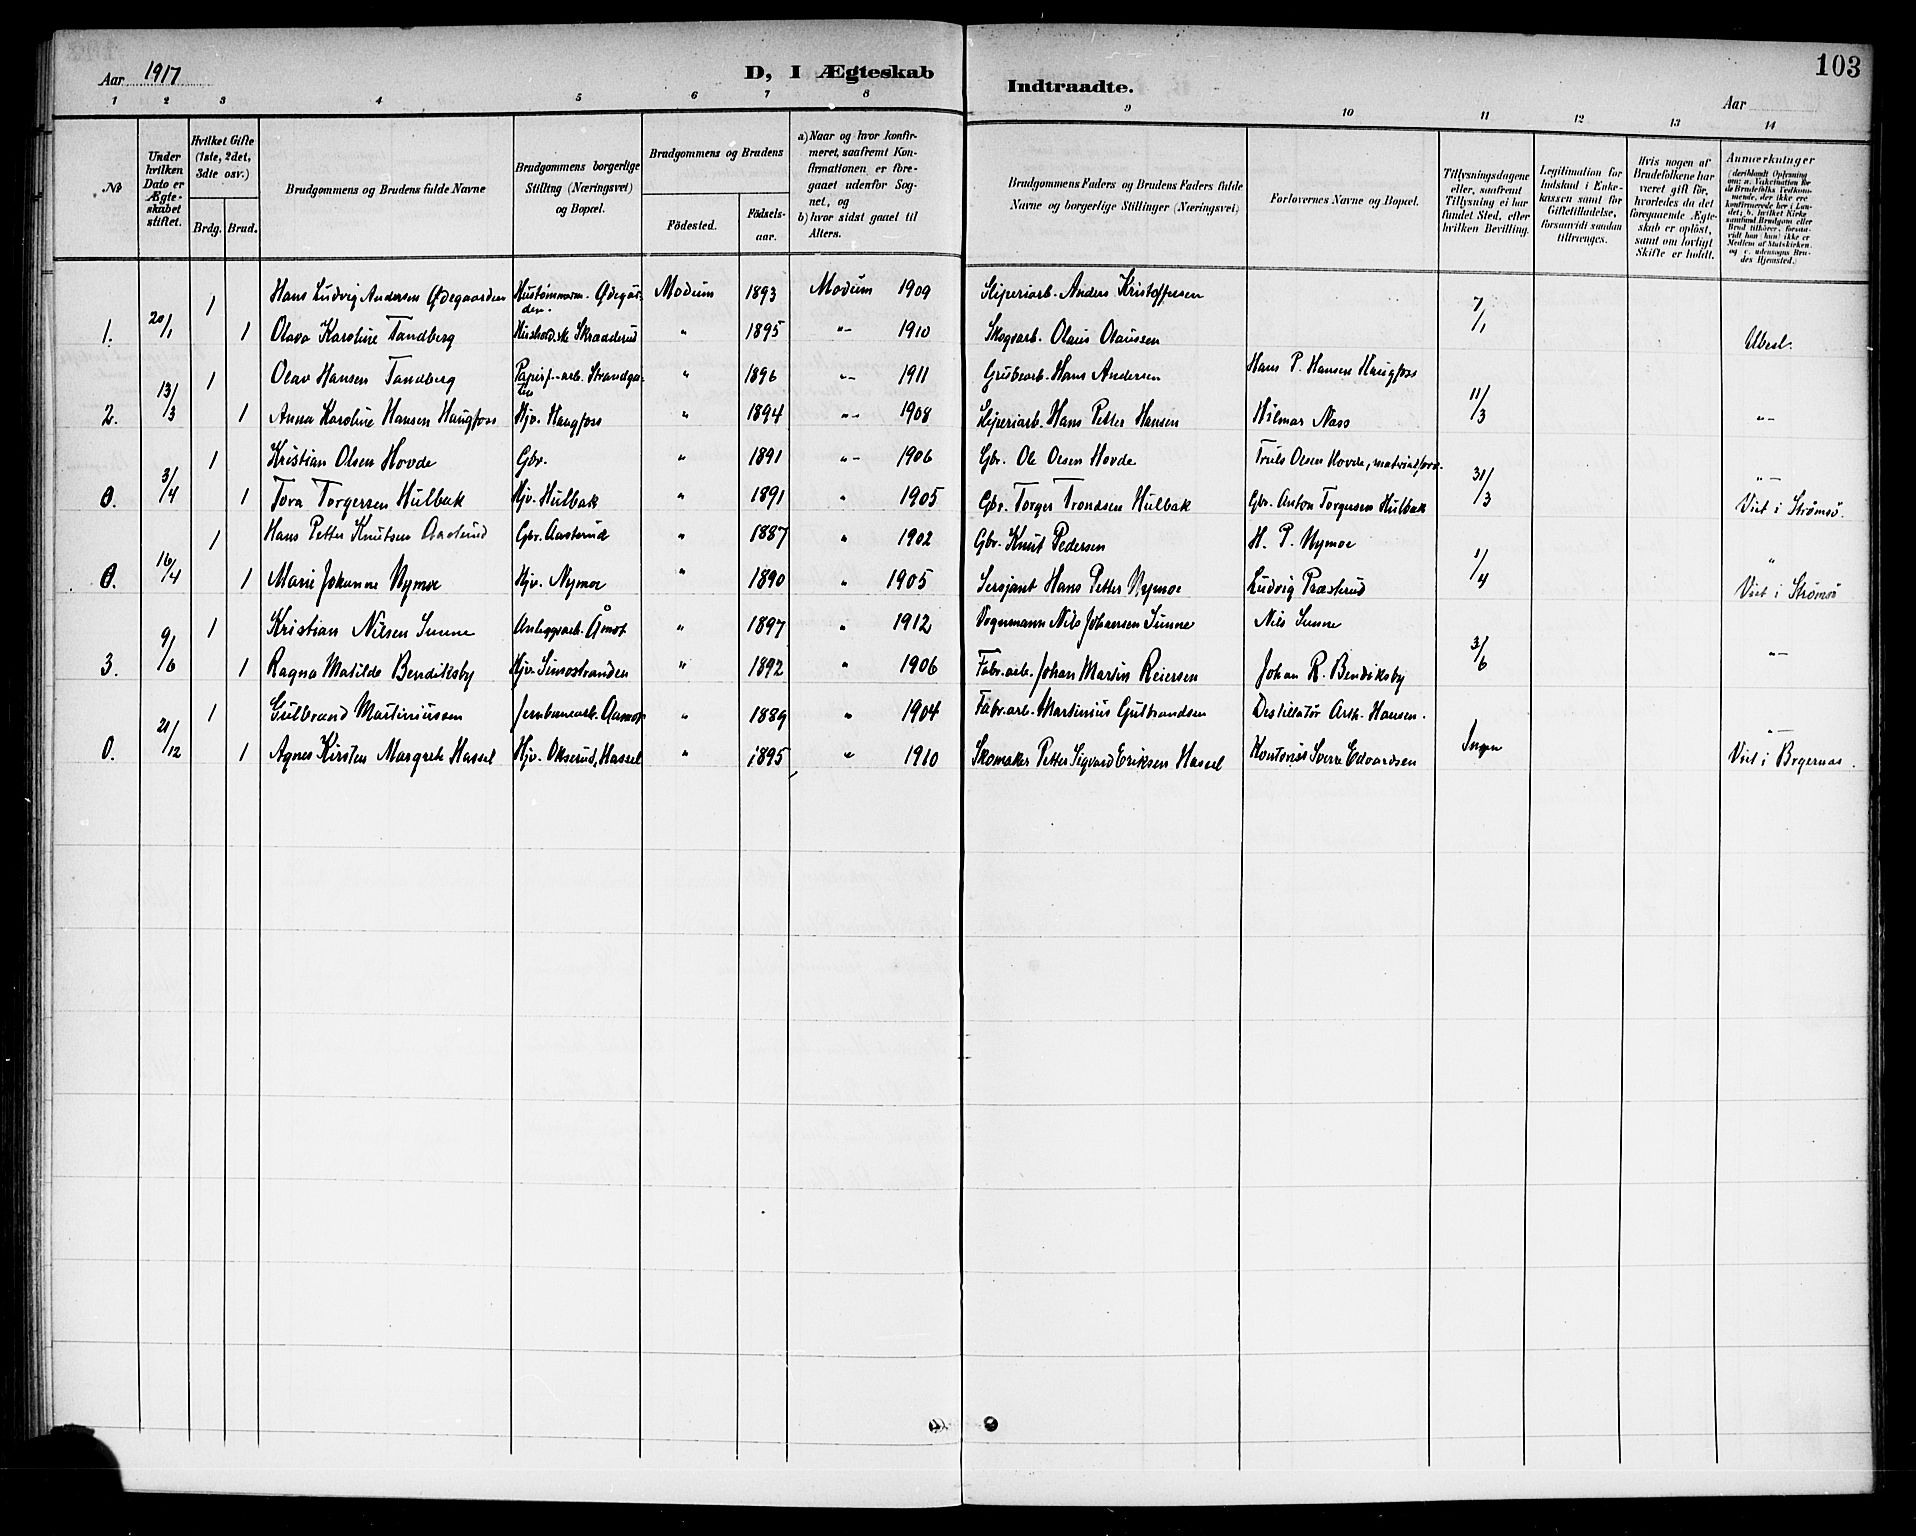 Aar 1917
D, I Ægteskab
Indtraadte.
Aar
103
1 2 3 4 5 6 7 8 9 10 11 12 13 14
№
Under hvilken Dato er Ægteskabet stiftet.
Hvilket Gifte (1ste, 2det, 3dte osv.)
Brdg. Brud.
Brudgommens og Brudens fulde Navne
Brudgommens borgerlige Stilling (Næringsvei) og Bopæl.
Brudgommens og Brudens
Födested.
Födselsaar.
a) Naar og hvor konfirmeret, saafremt Konfirmationen er foregaaet udenfor Sognet, og
b) hvor sidst gaaet til Alters.
Brudgommens Faders og Brudens Faders fulde Navne og borgerlige Stillinger (Næringsvei)
Forlovernes Navne og Bopæl.
Tillysningsdagene eller, saafremt Tillysning ei har fundet Sted, efter hvilken Bevilling.
Legitimation for Indskud i Enkekassen samt for Giftetilladelse, forsaavidt saadan tiltrænges.
Hvis nogen af Brudefolkene har været gift för, hvorledes da det foregaaende Ægteskab er oplöst, samt om lovligt Skifte er holdt.
Anmærkninger (deriblandt Oplysning om: a. Vakcination for de Brudefolks Vedkommende, der ikke ere konfirmerede her i Landet; b. hvilket Kirkesamfund Brudgom eller Brud tilhörer, forsaavidt han (hun) ikke er Medlem af Statskirken, og c. udensogns Brudes Hjemsted.)
1 Hans Ludvig Andersen Ødegaarden Hustømmerm. Ødegaarden. Modum 1893 Modum 1909 Sliperiarb. Anders Kristoffersen
1. 20/1 1 Olava Karoline Tandberg Hushold.ske Skradderud " 1895 " 1910 Skogvarb. Olaus Olaussen 7/1 Ubesl.
1 Olav Hansen Tandberg Papirf.arb. Strandgaten " 1896 " 1911 Grubearb. Hans Andersen Hans P. Hansen Haugfoss
2. 13/3 1 Anna Karoline Hansen Haugfoss Hjv. Haugfoss " 1894 " 1908 Sliperiarb. Hans Petter Hansen Hilmar Nass 11/3 "
1 Kristian Olsen Hovde Gbr. " 1891 " 1906 Gbr. Ole Olsen Hovde Truls Olsen Hovde,
0. 3/4 1 Tora Torgersen Hulbak Hjv. Hulbak " 1891 " 1905 Gbr. Torger Trondsen Hulbak Gbr. Anton Torgersen Hulbak 31/3 " Viet i Strømsø.
1 Hans Petter Knutsen Aasterud Gbr. Aasterud " 1887 " 1902 Gbr. Knut Pedersen H. P. Nymoe
0. 16/4 1 Marie Johanne Nymoe Hjv. Nymoe " 1890 " 1905 Sersjant Hans Petter Nymoe Ludvig Præsterud 1/4 " Viet i Strømsø
1 Kristian Nilsen Sunne Anleggsarb. Åmot " 1897 " 1912 Vognmann Nils Johansen Sunne Nils Sunne
3. 9/6 1 Ragna Matilde Bendiksby Hjv. Simostranden " 1892 " 1906 Fabr.arb. Johan Martin Reiersen Johan R. Bendiksby 3/6 "
1 Gulbrand Martiniussen Jernbanearb. Aamot " 1889 " 1904 Fabr.arb. Martinius Gulbrandsen Destillatør Arth. Hansen.
0. 21/12 1 Agnes Kirsten Margrete Hassel Hjv. Okserud, Hassel " 1895 " 1910 Skomaker Petter Sigvard Eriksen Hassel Kontorist Sverre Edvardsen Ingen " Viet i Bragernæs.